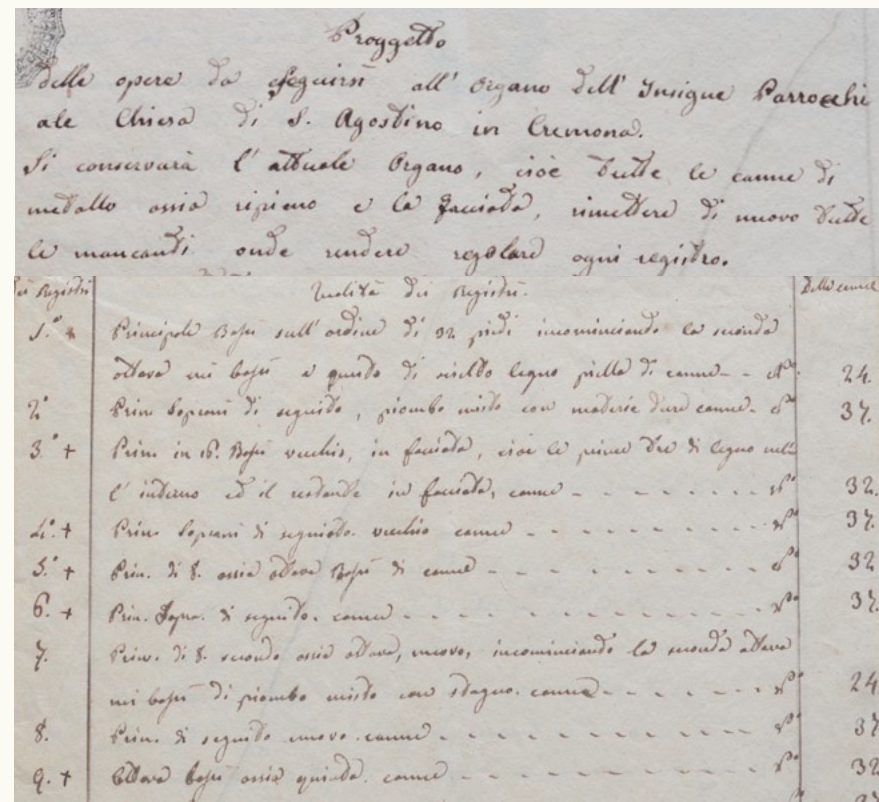 Proggetto
delle opere da eseguirsi all' Organo dell' Insigne Parrochi
ale Chiesa di S. Agostino in Cremona.
Si conservarà l' attuale Organo, cioè tutte le canne di
metallo ossia ripieno e la facciata, rimettere di nuovo tutte
le mancanti onde rendere regolare ogni registro.
Registri Qualità dei Registri. Delle canne
1.° + Principale Bassi sull' ordine di 32 piedi incominciando la seconda
ottava nei bassi e questo di scielto legno piella di canne - - N° 24.
2° Prin. Soprani di seguito, piombo misto con materie dure canne - N° 37.
3.° + Prin. in 16. Bassi vecchio, in facciata, cioè le prime tre di legno nel
l' interno ed il restante in facciata, canne - - - - - - - - N° 32.
4.° + Prin. Soprani di seguito. vecchio canne - - - - - - - - N° 37.
5.° + Prin. di 8. ossia ottava Bassi di canne - - - - - - - - N° 32
6. + Prin. Sopra. di seguito. canne - - - - - - - - N° 37.
7. Prin. di 8. secondo ossia ottava, nuovo, incominciando la seconda ottava
nei bassi di piombo misto con stagno. canne - - - - - - N° 24
8. Prin. di seguito nuovo. canne - - - - - - - - N° 37
9. + Ottava bassi ossia quinta. canne - - - - - - - - N° 32